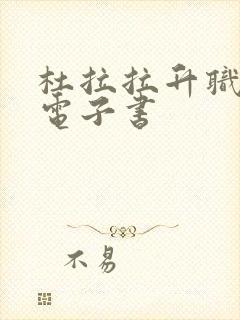 杜拉拉升職
電子書
不易